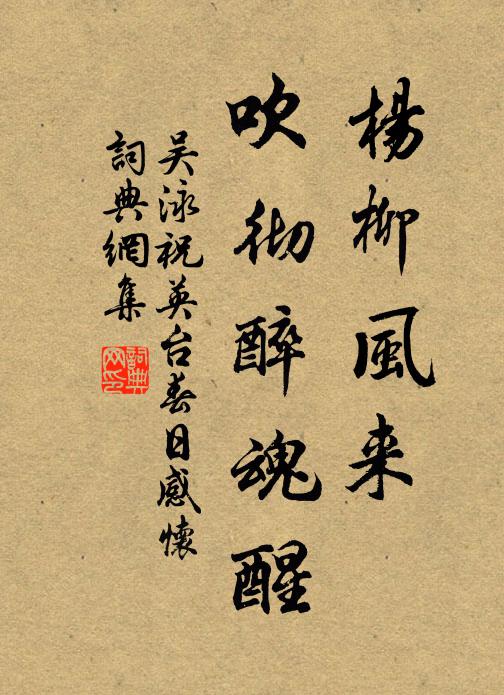 楊柳風来
吹彻醉魂醒
吴泳祝英台春日感懷
詞典網集
詞典网印